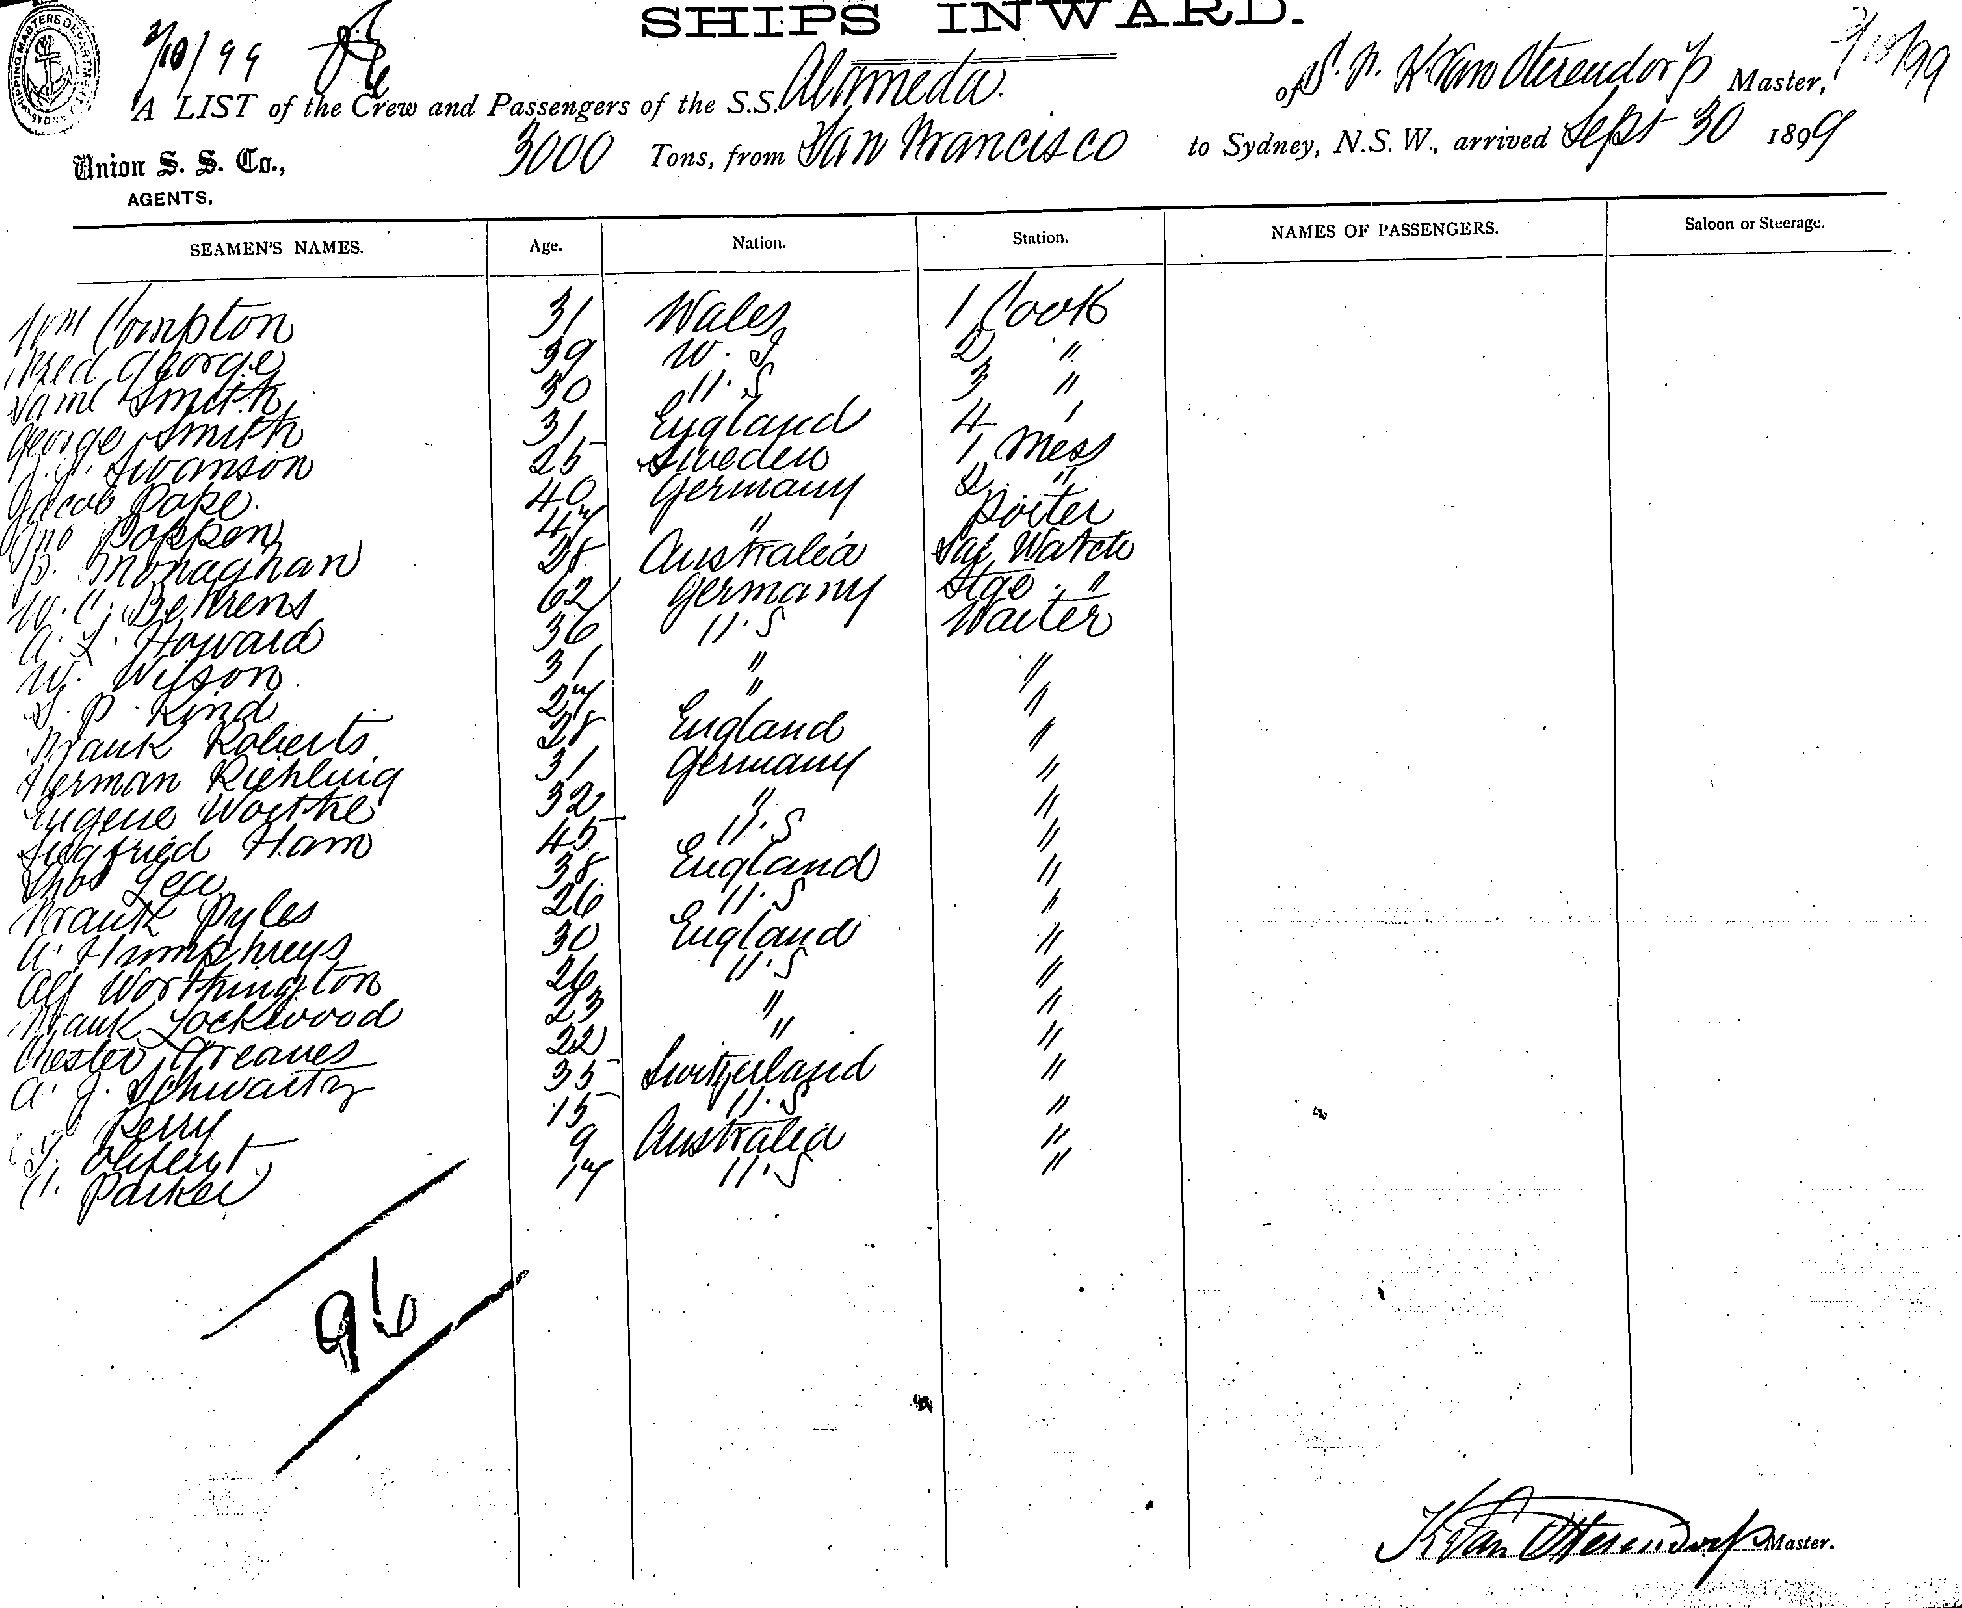 SHIPS INWARD.
2/10/99
A LIST of the Crew and Passengers of the S.S. Alameda of S. F. K Van Oterendorp Master, 2/10/99
Union S. S. Co., 3000 Tons, from San Francisco to Sydney, N.S.W., arrived Sept 30 1899
AGENTS.
SEAMEN'S NAMES. Age. Nation. Station. NAMES OF PASSENGERS. Saloon or Steerage.
Wm Compton 31 Wales 1 Cook
Fred George 39 W. I 2 "
Saml Smith 30 U.S 3 "
George Smith 31 England 4 "
Swanson 25 Sweden 1 Mess
Jacob Pape 40 Germany 2 "
Jno Poppen 47 " Porter
P. Monaghan 28 Australia Sal Watch
W. C. Behrens 62 Germany Stge "
A. L. Howard 36 U.S Waiter
W. Wilson 31 " "
S. P. Kind 27 " "
Frank Roberts 28 England "
Herman Riehling 31 Germany "
Eugene Worthe 32 " "
Siegfried Ham 45 U.S "
Thos Lea 38 England "
Frank Pyles 26 U.S "
A. Humphreys 30 England "
Alf Worthington 26 U.S "
Frank Lockwood 23 " "
Chester Greaves 22 " "
A. J. Schwartz 35 Switzerland "
Perry 15 U.S "
Olifent 9 Australia "
Parker 17 U.S "
96
K Van Oterendorp Master.